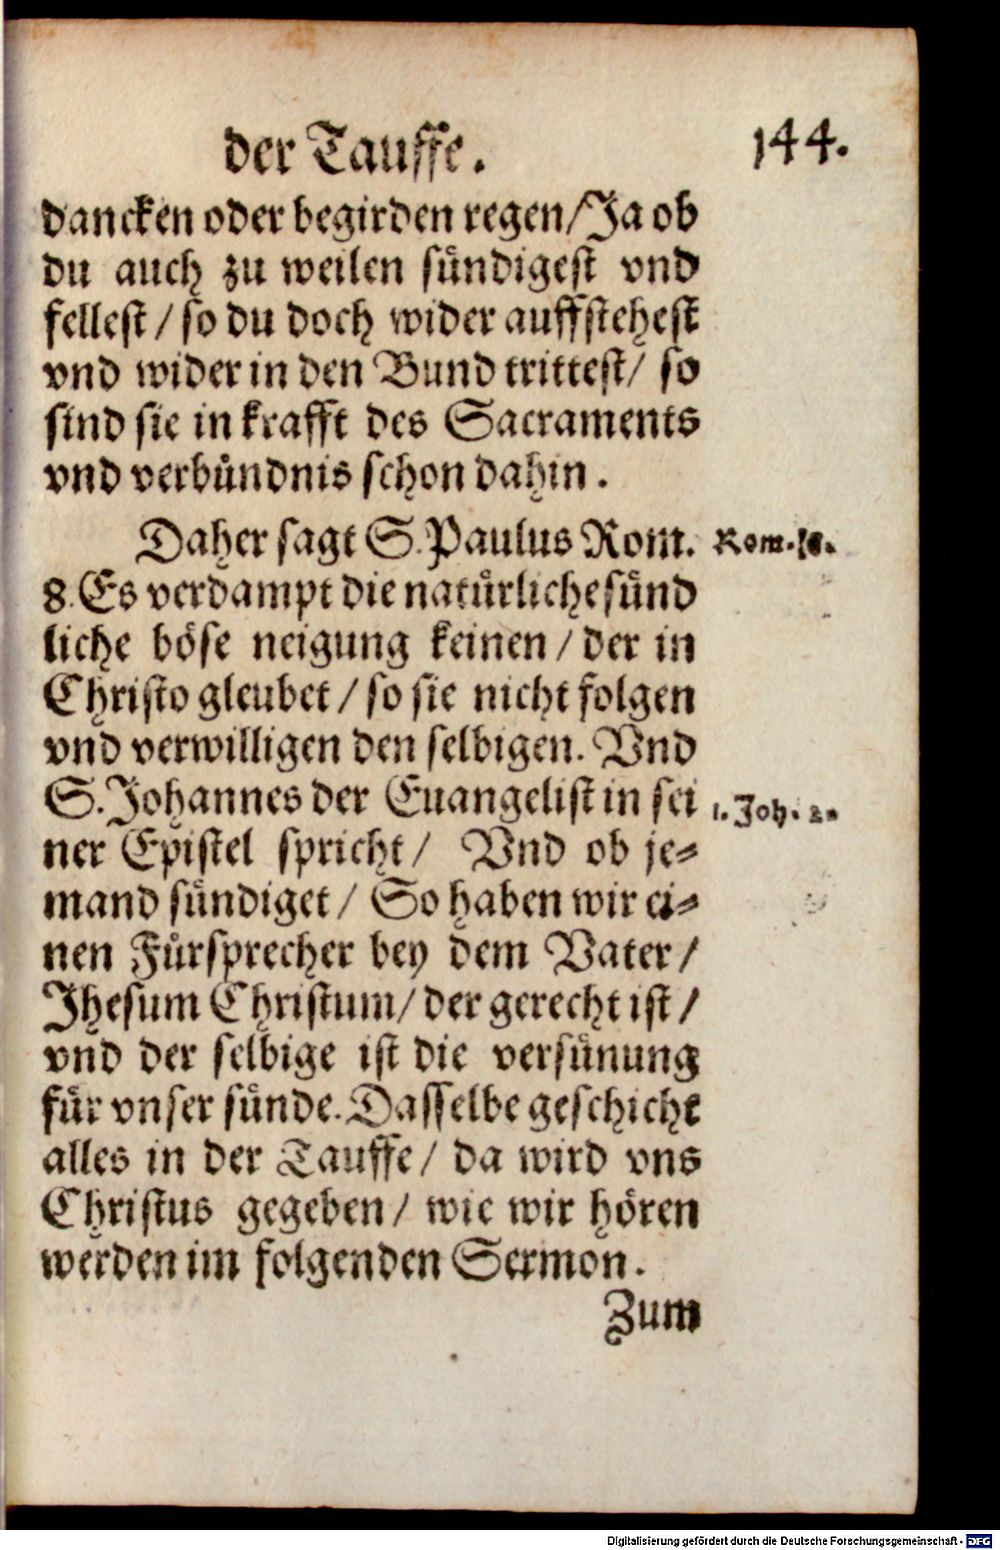 der Tauffe. 144.
dancken oder begirden regen/Ja ob
du auch zu weilen sündigest vnd
fellest / so du doch wider auffstehest
vnd wider in den Bund trittest/ so
sind sie in krafft des Sacraments
vnd verbündnis schon dahin.
Daher sagt S. Paulus Rom. Rom. 8.
8. Es verdampt die natürliche sünd
liche böse neigung keinen / der in
Christo gleubet / so sie nicht folgen
vnd verwilligen den selbigen. Vnd
S. Johannes der Euangelist in sei 1. Joh. 2.
ner Epistel spricht / Vnd ob je=
mand sündiget / So haben wir ei=
nen Fürsprecher bey dem Vater /
Jhesum Christum/ der gerecht ist /
vnd der selbige ist die versünung
für vnser sünde. Dasselbe geschicht
alles in der Tauffe / da wird vns
Christus gegeben / wie wir hören
werden im folgenden Sermon.
Zum
Digitalisierung gefördert durch die Deutsche Forschungsgemeinschaft - DFG